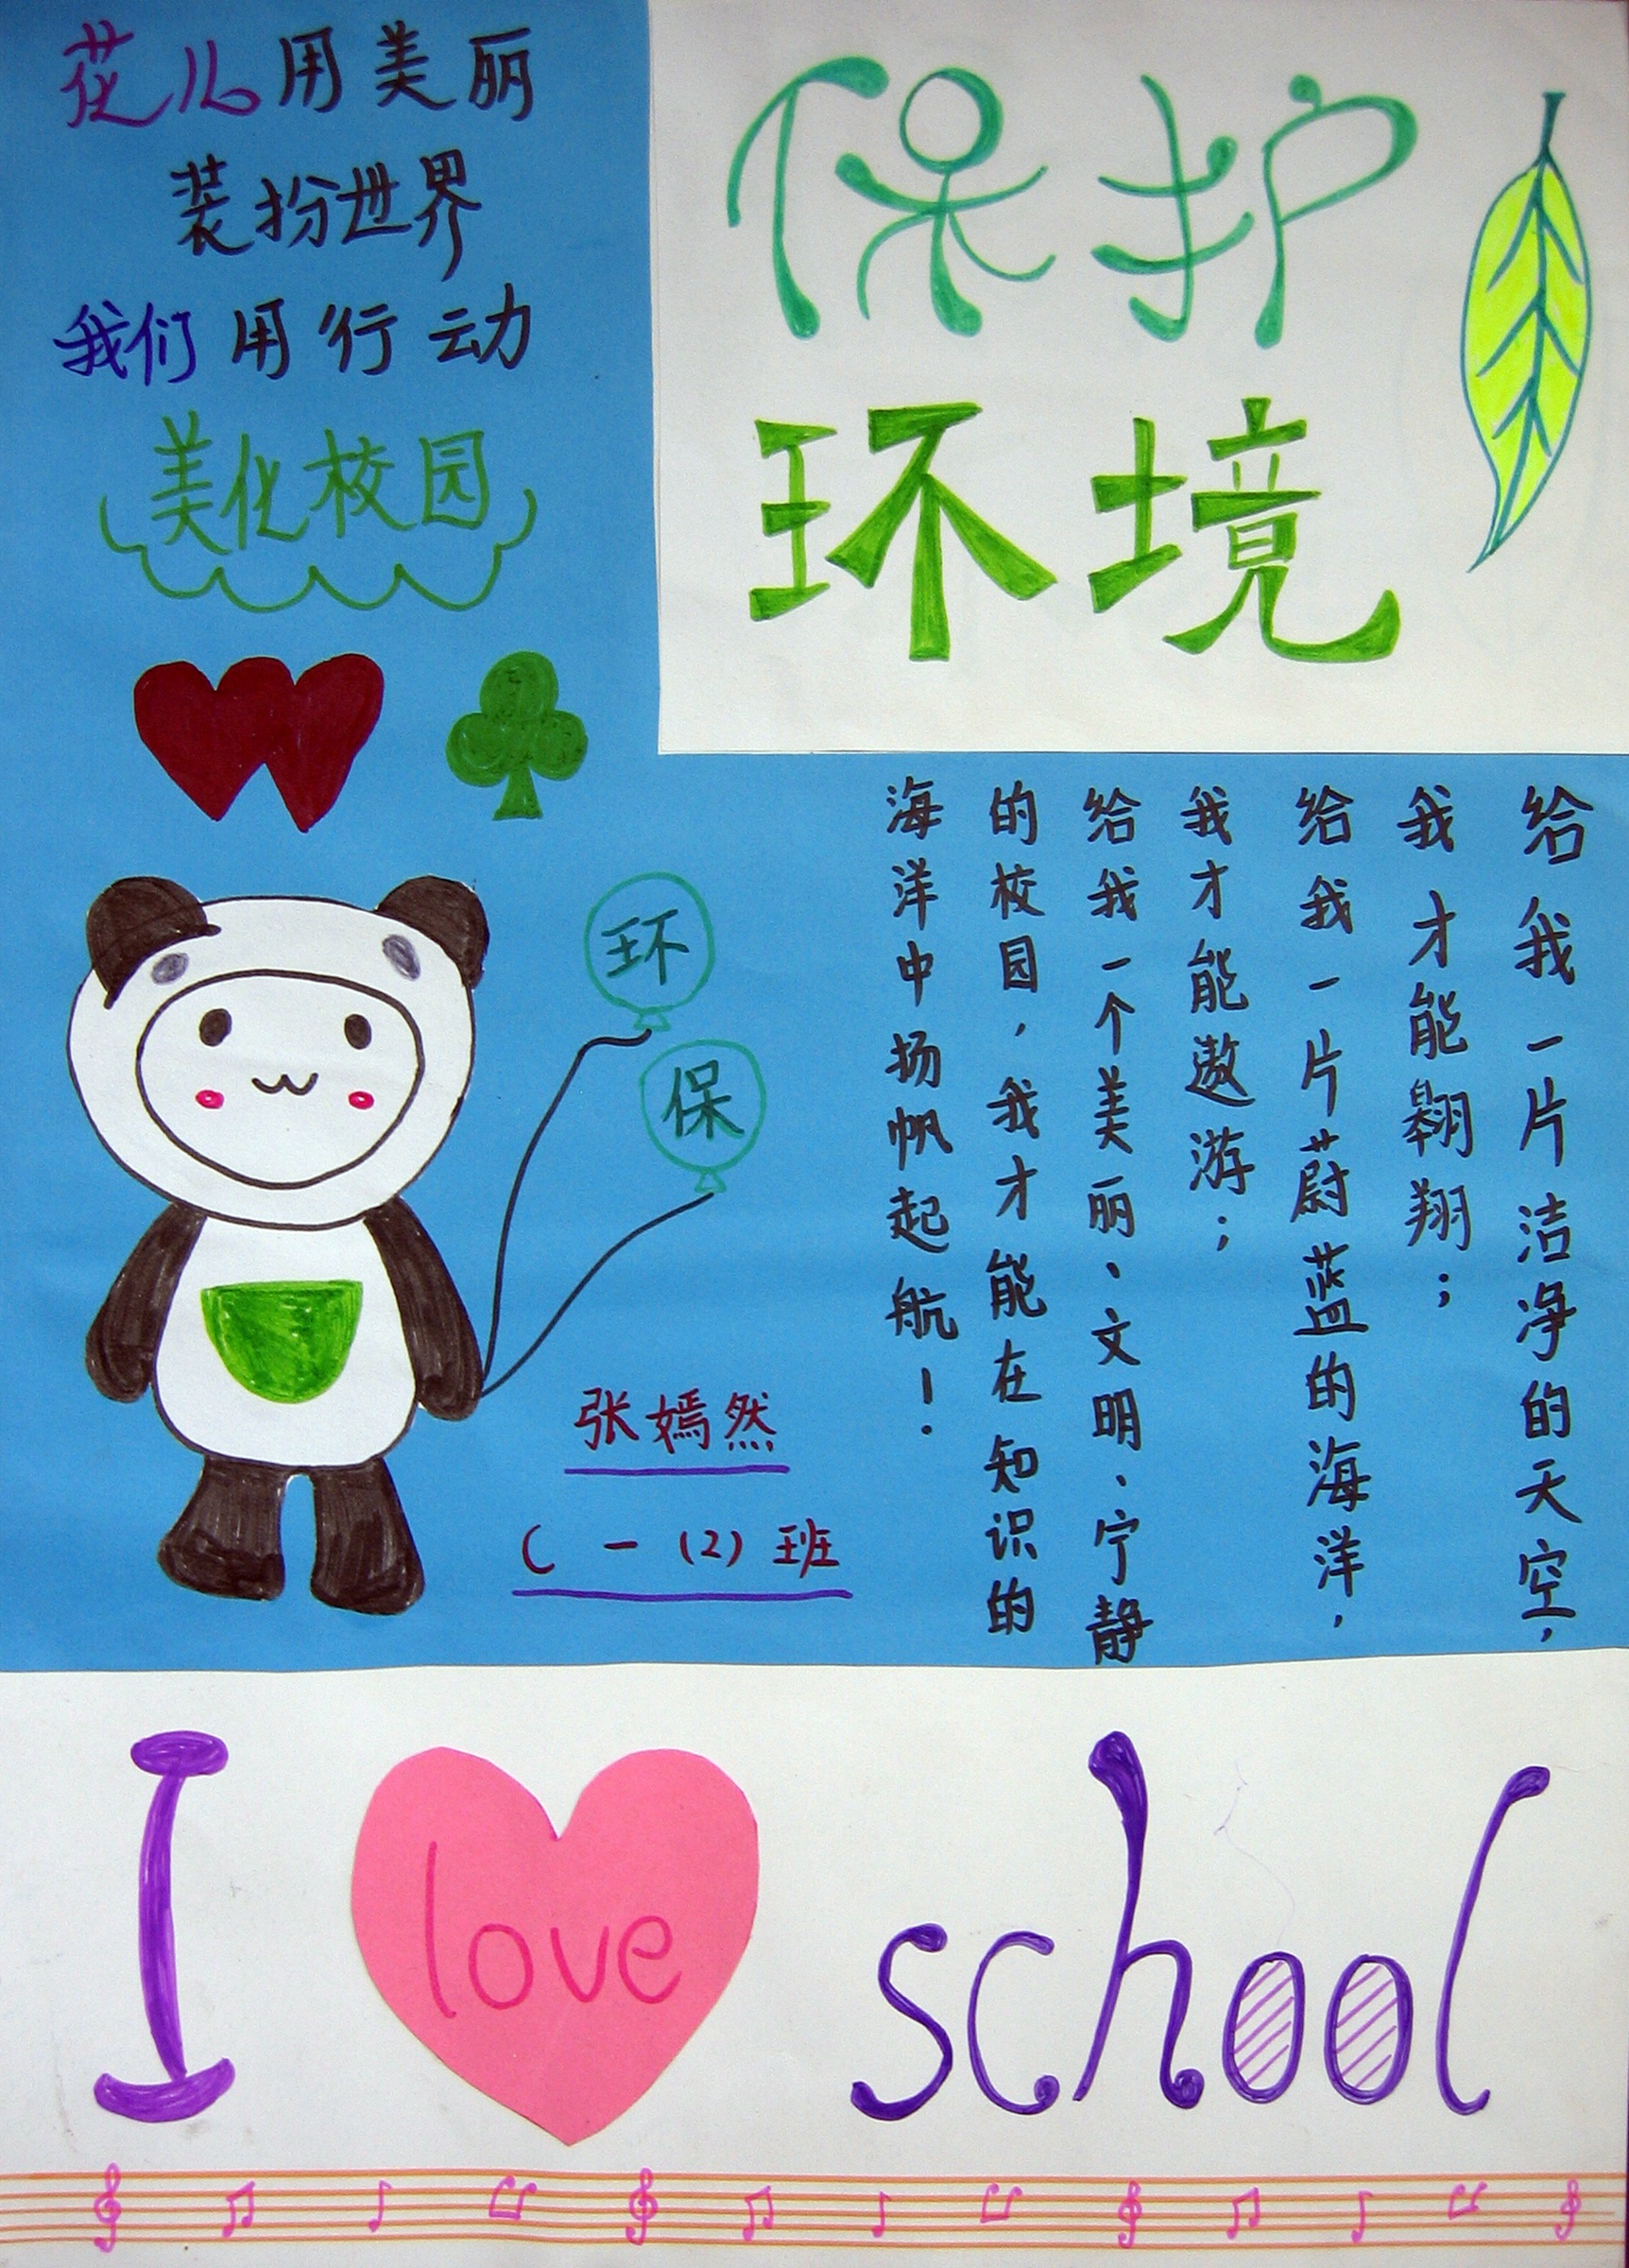 花儿用美丽
装扮世界
我们用行动
美化校园
保护
环境
给我一片洁净的天空，
我才能翱翔；
给我一片蔚蓝的海洋，
我才能遨游；
给我一个美丽、文明、宁静
的校园，我才能在知识的
海洋中扬帆起航！
环
保
张嫣然
( 一 (2) 班
I love school